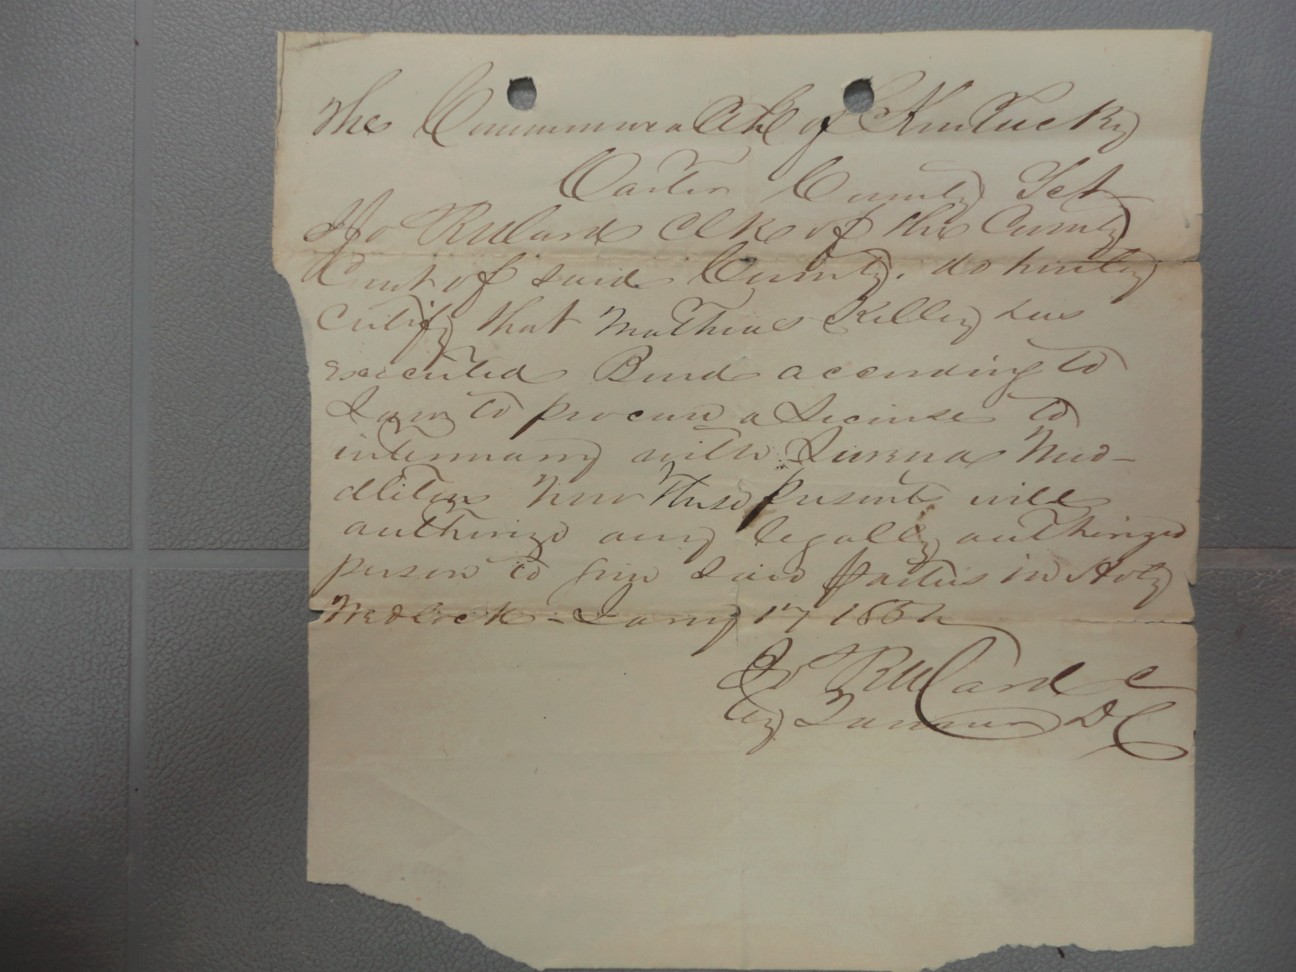 The Commonwealth of Kentucky
Carter County Sct
I Jo Rulard Clk of the County
Court of said County, do hereby
certify that Mathias Kelley has
executed Bond according to
Law to procure a License to
intermarry with Lurena Mid-
dleton Now these presents will
authorize any legally authorized
person to join said parties in Holy
Wedlock - Jany 17 1862
Jo Rulard C
by D C